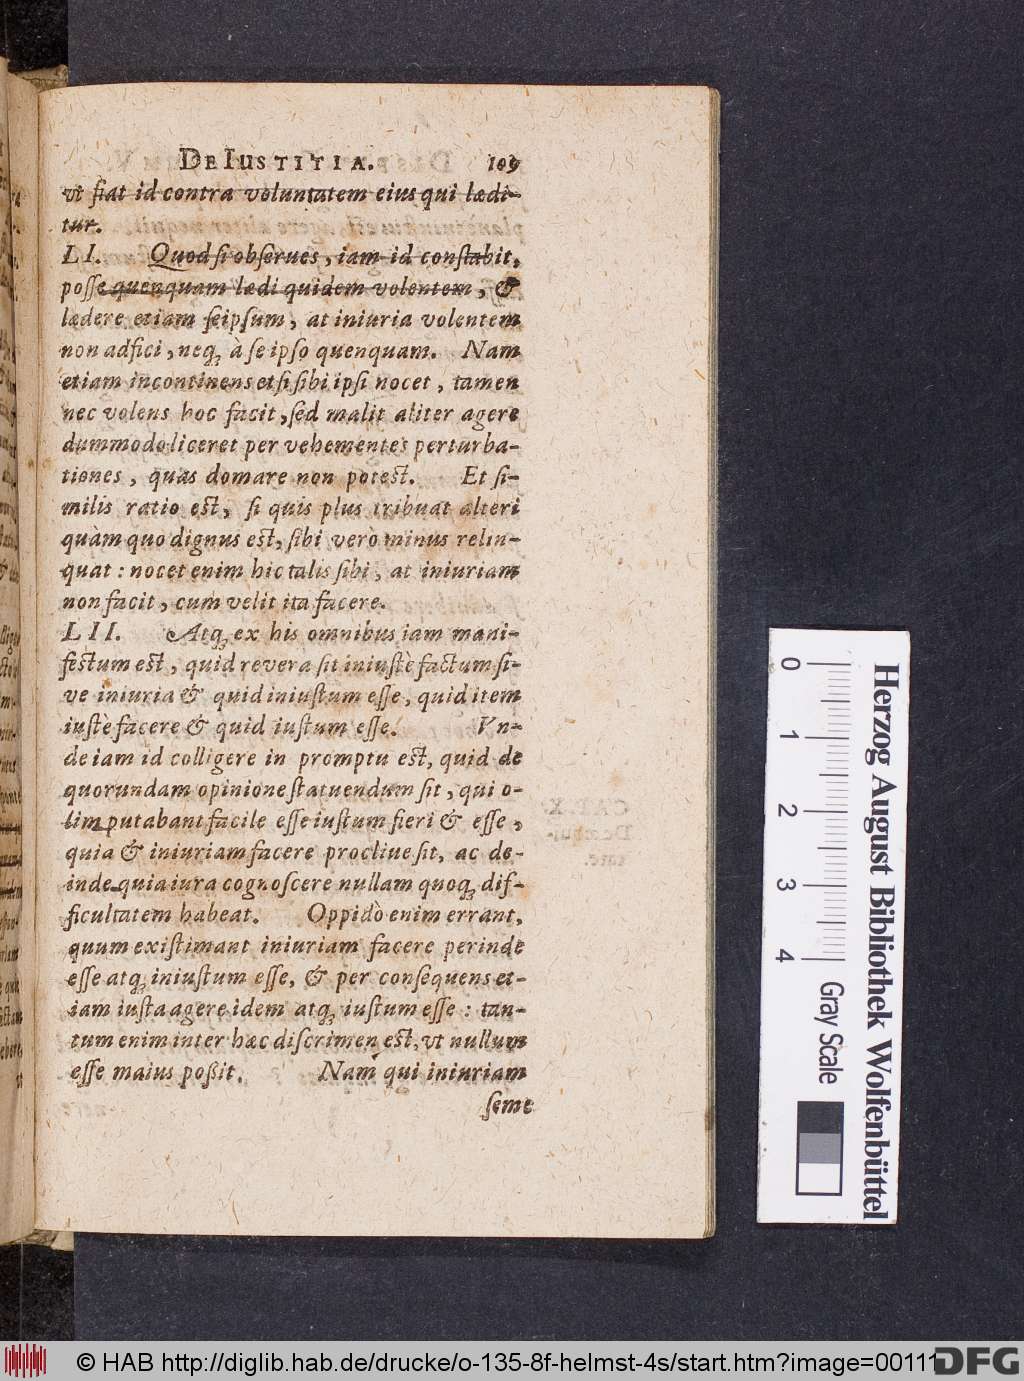 DE IUSTITIA. 109
vt fiat id contra voluntatem eius qui lædi-
tur.
LI. Quod si obserues, iam id constabit,
posse quenquam lædi quidem volentem, &
lædere etiam seipsum, at iniuria volentem
non adfici, neq; à se ipso quenquam. Nam
etiam incontinens etsi sibi ipsi nocet, tamen
nec volens hoc facit, sed malit aliter agere
dummodo liceret per vehementes perturba-
tiones, quas domare non potest. Et si-
milis ratio est, si quis plus tribuat alteri
quàm quo dignus est, sibi verò minus relin-
quat: nocet enim hic talis sibi, at iniuriam
non facit, cum velit ita facere.
LII. Atq; ex his omnibus iam mani-
festum est, quid revera sit iniustè factum si-
ve iniuria & quid iniustum esse, quid item
iustè facere & quid iustum esse. Vn-
de iam id colligere in promptu est, quid de
quorundam opinione statuendum sit, qui o-
lim putabant facile esse iustum fieri & esse,
quia & iniuriam facere proclive sit, ac de-
inde quia iura cognoscere nullam quoq; dif-
ficultatem habeat. Oppidò enim errant,
quum existimant iniuriam facere perinde
esse atq; iniustum esse, & per consequens et-
iam iusta agere idem atq; iustum esse: tan-
tum enim inter hæc discrimen est, vt nullum
esse maius poßit. Nam qui iniuriam
seme
0 1 2 3 4
Gray Scale
Herzog August Bibliothek Wolfenbüttel
© HAB http://diglib.hab.de/drucke/o-135-8f-helmst-4s/start.htm?image=00111
DFG